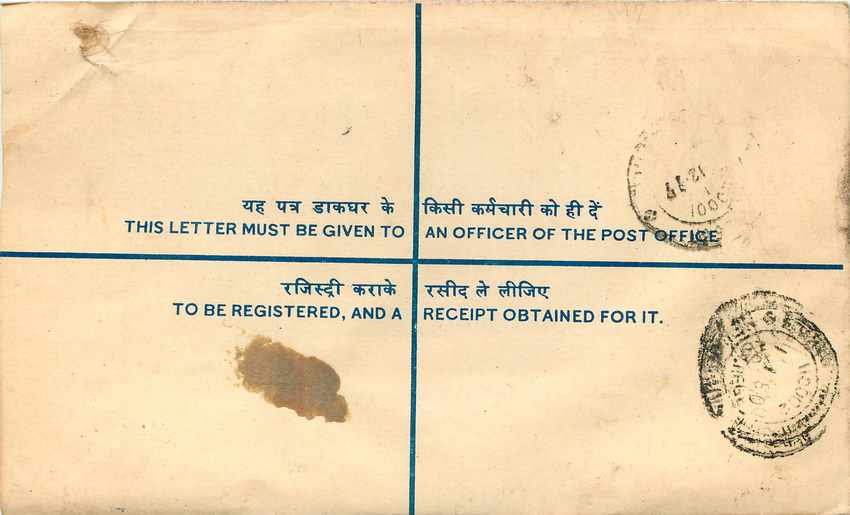 यह पत्र डाकघर के किसी कर्मचारी को ही दें
THIS LETTER MUST BE GIVEN TO AN OFFICER OF THE POST OFFICE
रजिस्ट्री कराके रसीद ले लीजिए
TO BE REGISTERED, AND A RECEIPT OBTAINED FOR IT.